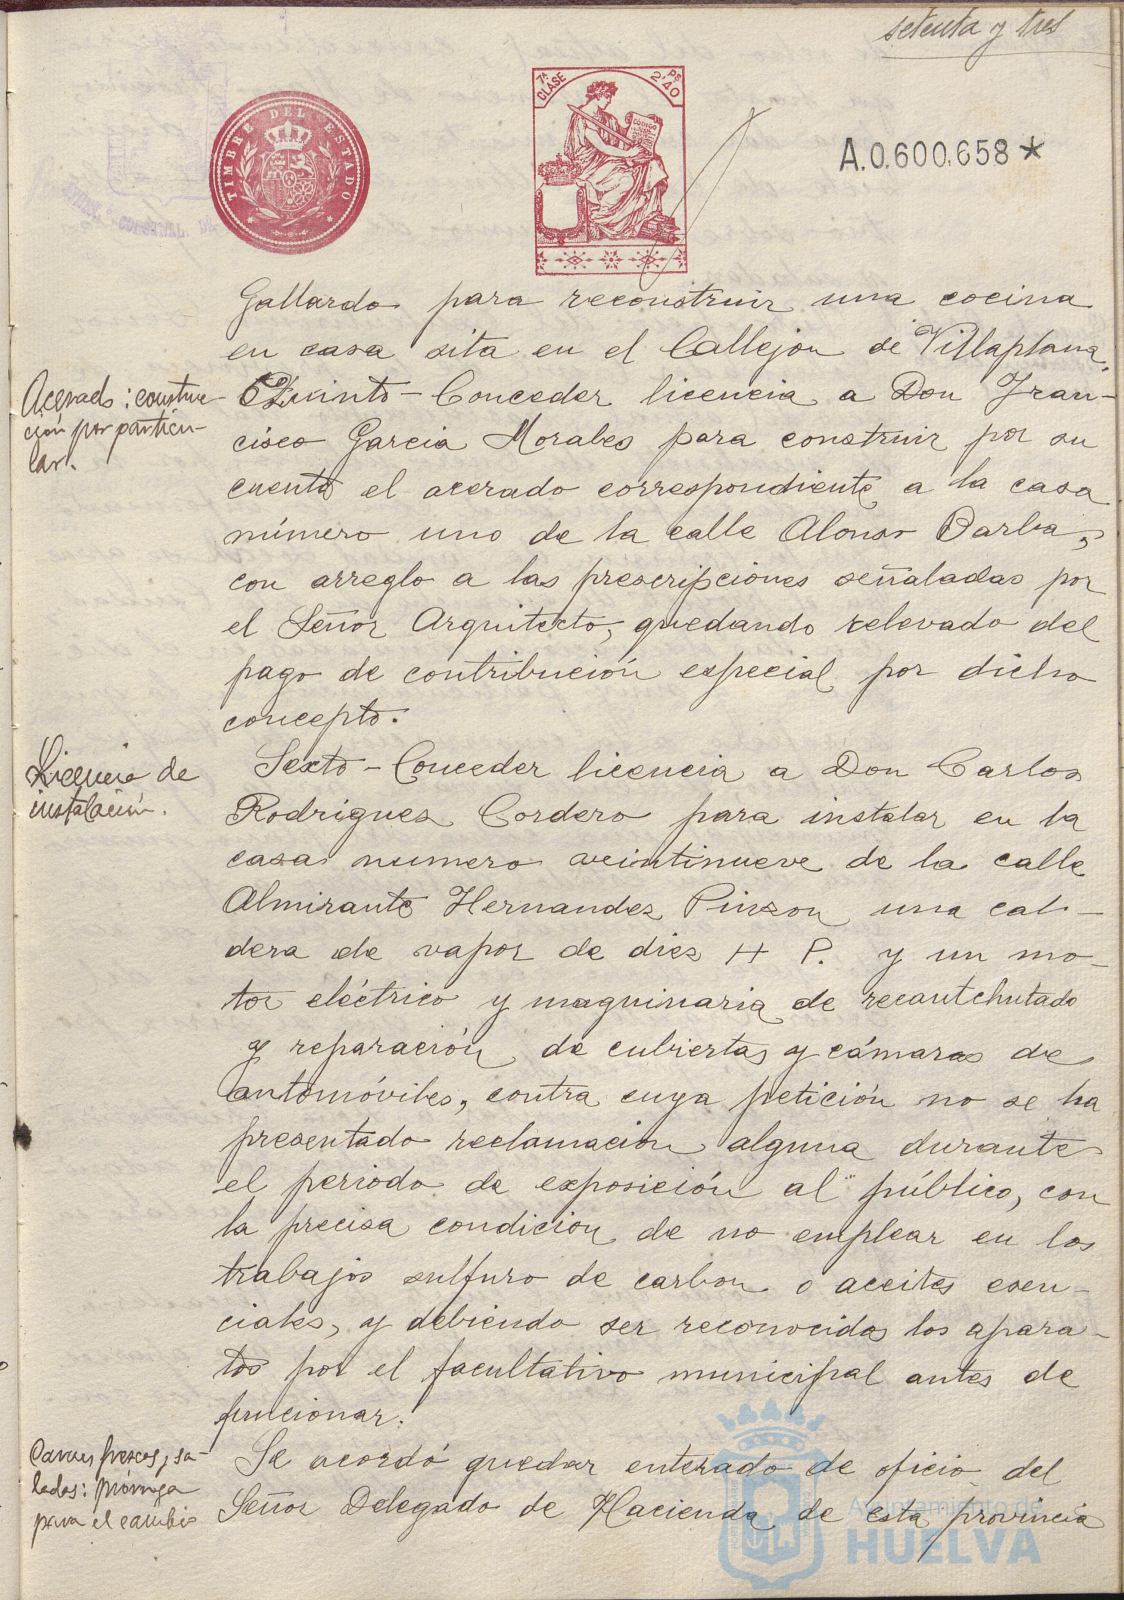 setenta y tres
TIMBRE DEL ESTADO
7ª CLASE
2'40 Ps
CÓDIGO
A.0.600.658*
Gallardo para reconstruir una cocina
en casa sita en el Callejon de Villaplana.
Acerado: construc-
ción por particu-
lar.
Quinto - Conceder licencia a Don Fran-
cisco Garcia Morales para construir por su
cuenta el acerado correspondiente a la casa
número uno de la calle Alonso Barba,
con arreglo a las prescripciones señaladas por
el Señor Arquitecto, quedando relevado del
pago de contribución especial por dicho
concepto.
Licencia de
instalación.
Sexto - Conceder licencia a Don Carlos
Rodriguez Cordero para instalar en la
casa numero veintinueve de la calle
Almirante Hernandez Pinzon una cal-
dera de vapor de diez H P. y un mo-
tor eléctrico y maquinaria de recautchutado
y reparación de cubiertas y cámaras de
automóviles, contra cuya petición no se ha
presentado reclamacion alguna durante
el periodo de exposición al público, con
la precisa condicion de no emplear en los
trabajos sulfuro de carbon o aceites esen-
ciales, y debiendo ser reconocidos los apara-
tos por el facultativo municipal antes de
funcionar.
Carnes frescas y sa-
ladas: prórroga
para el cambio
Se acordó quedar enterado de oficio del
Señor Delegado de Hacienda de esta provincia
Ayuntamiento de
HUELVA